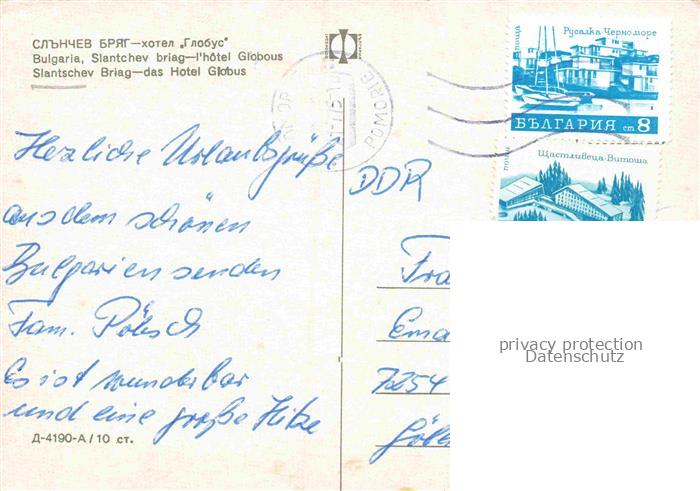 СЛЪНЧЕВ БРЯГ—хотел „Глобус“
Bulgaria, Slantchev briag—l'hôtel Globous
Slantschev Briag—das Hotel Globus
POMORIE
Русалка Черноморе
поща
БЪЛГАРИЯ ст 8
Щастливеца-Витоша
поща
Herzliche Urlaubsgrüße
aus dem schönen
Bulgarien senden
Fam. Pötsch
Es ist wunderbar
und eine große Hitze
DDR
Fra
Ema
7254
privacy protection
Datenschutz
Д-4190-А / 10 ст.